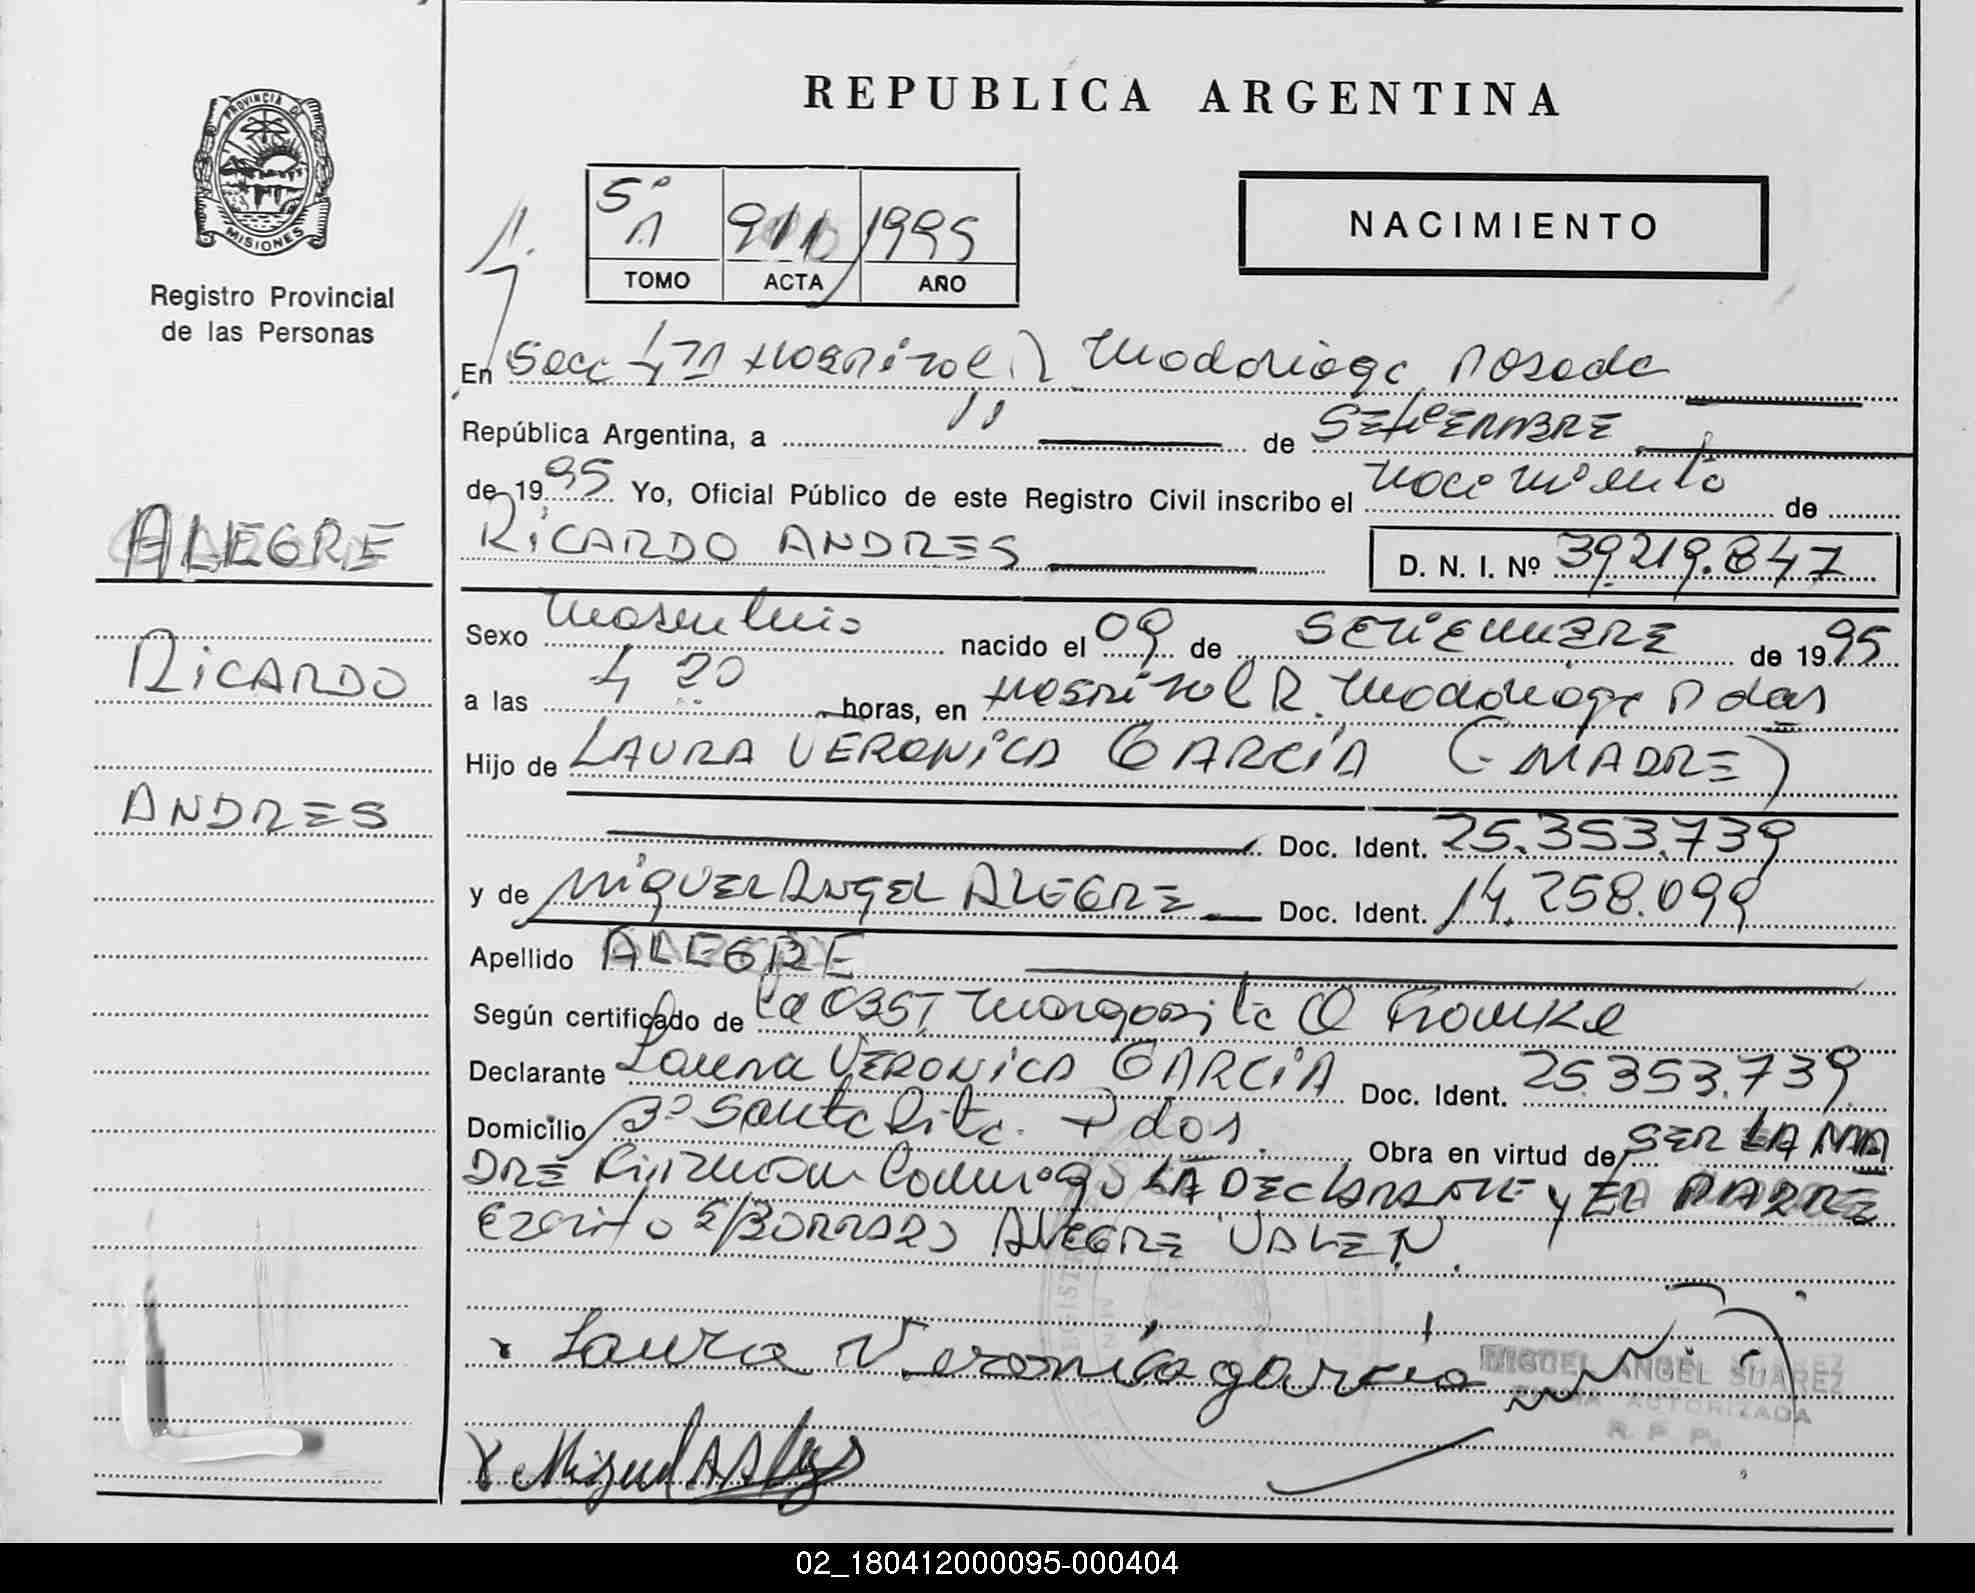 PROVINCIA DE
MISIONES
Registro Provincial
de las Personas
ALEGRE
RICARDO
ANDRES
REPUBLICA ARGENTINA
5º
1 911 1995
TOMO ACTA AÑO
NACIMIENTO
En Secc 4ta Hospital R Madariaga Posadas
República Argentina, a 11 de SETIEMBRE
de 1995 Yo, Oficial Público de este Registro Civil inscribo el nacimiento de
RICARDO ANDRES D. N. I. Nº 39.219.847
Sexo masculino nacido el 09 de SETIEMBRE de 1995
a las 4 20 horas, en Hospital R. Madariaga Pdas
Hijo de LAURA VERONICA GARCIA (MADRE)
Doc. Ident. 25.353.739
y de MIGUEL ANGEL ALEGRE Doc. Ident. 14.258.099
Apellido ALEGRE
Según certificado de la OBST Margarita
Declarante Laura VERONICA GARCIA Doc. Ident. 25353.739
Domicilio Bº Santa Rita. Pdas. Obra en virtud de SER LA MA
DRE Firman Conmigo LA DECLARANTE y EL PADRE
Escrito S/BORRADO ALEGRE VALEN.
Laura Veronica garcia
MIGUEL ANGEL SUAREZ
FIRMA AUTORIZADA
R. P. P.
Miguel A
02_180412000095-000404